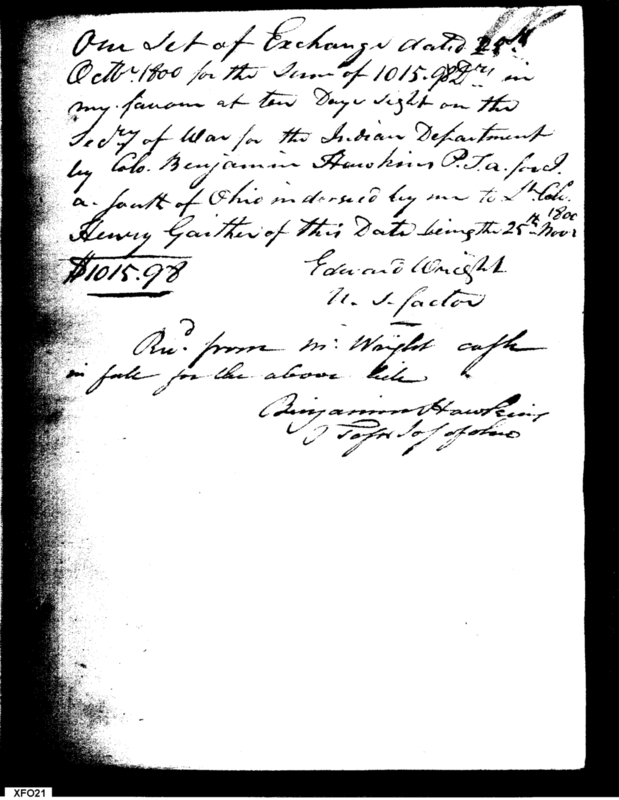 One Set of Exchange dated 25th
Octbr. 1800 for the Sum of 1015.98 Drs. in
my favour at ten Days sight on the
Secry of War for the Indian Department
by Colo. Benjamin Hawkins P.T.a. for I.
a. south of Ohio indorsed by me to Lt. Colo.
Henry Gaither of this Date being the 25th Novr 1800
$1015.98
Edward Wright
U. S. factor
Recd. from Mr. Wright cash
in full for the above bill
Benjamin Hawkins
of Ohio
XFO21